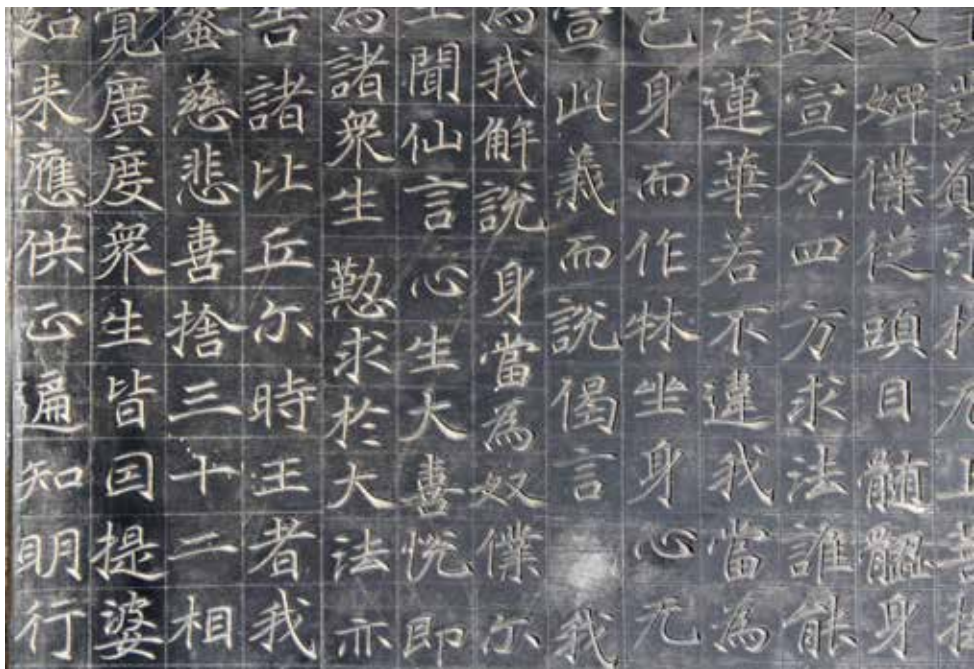 王發願求於无上菩提
奴婢僕從頭目髓腦身
鼓宣令四方求法誰能
法蓮華若不違我當為
己身而作牀坐身心无
宣此義而說偈言 我
為我解說 身當為奴僕尒
王聞仙言心生大喜悅即
為諸眾生 懃求於大法亦
告諸比丘尒時王者我
蜜慈悲喜捨三十二相
覺廣度眾生皆囙提婆
如来應供正遍知明行